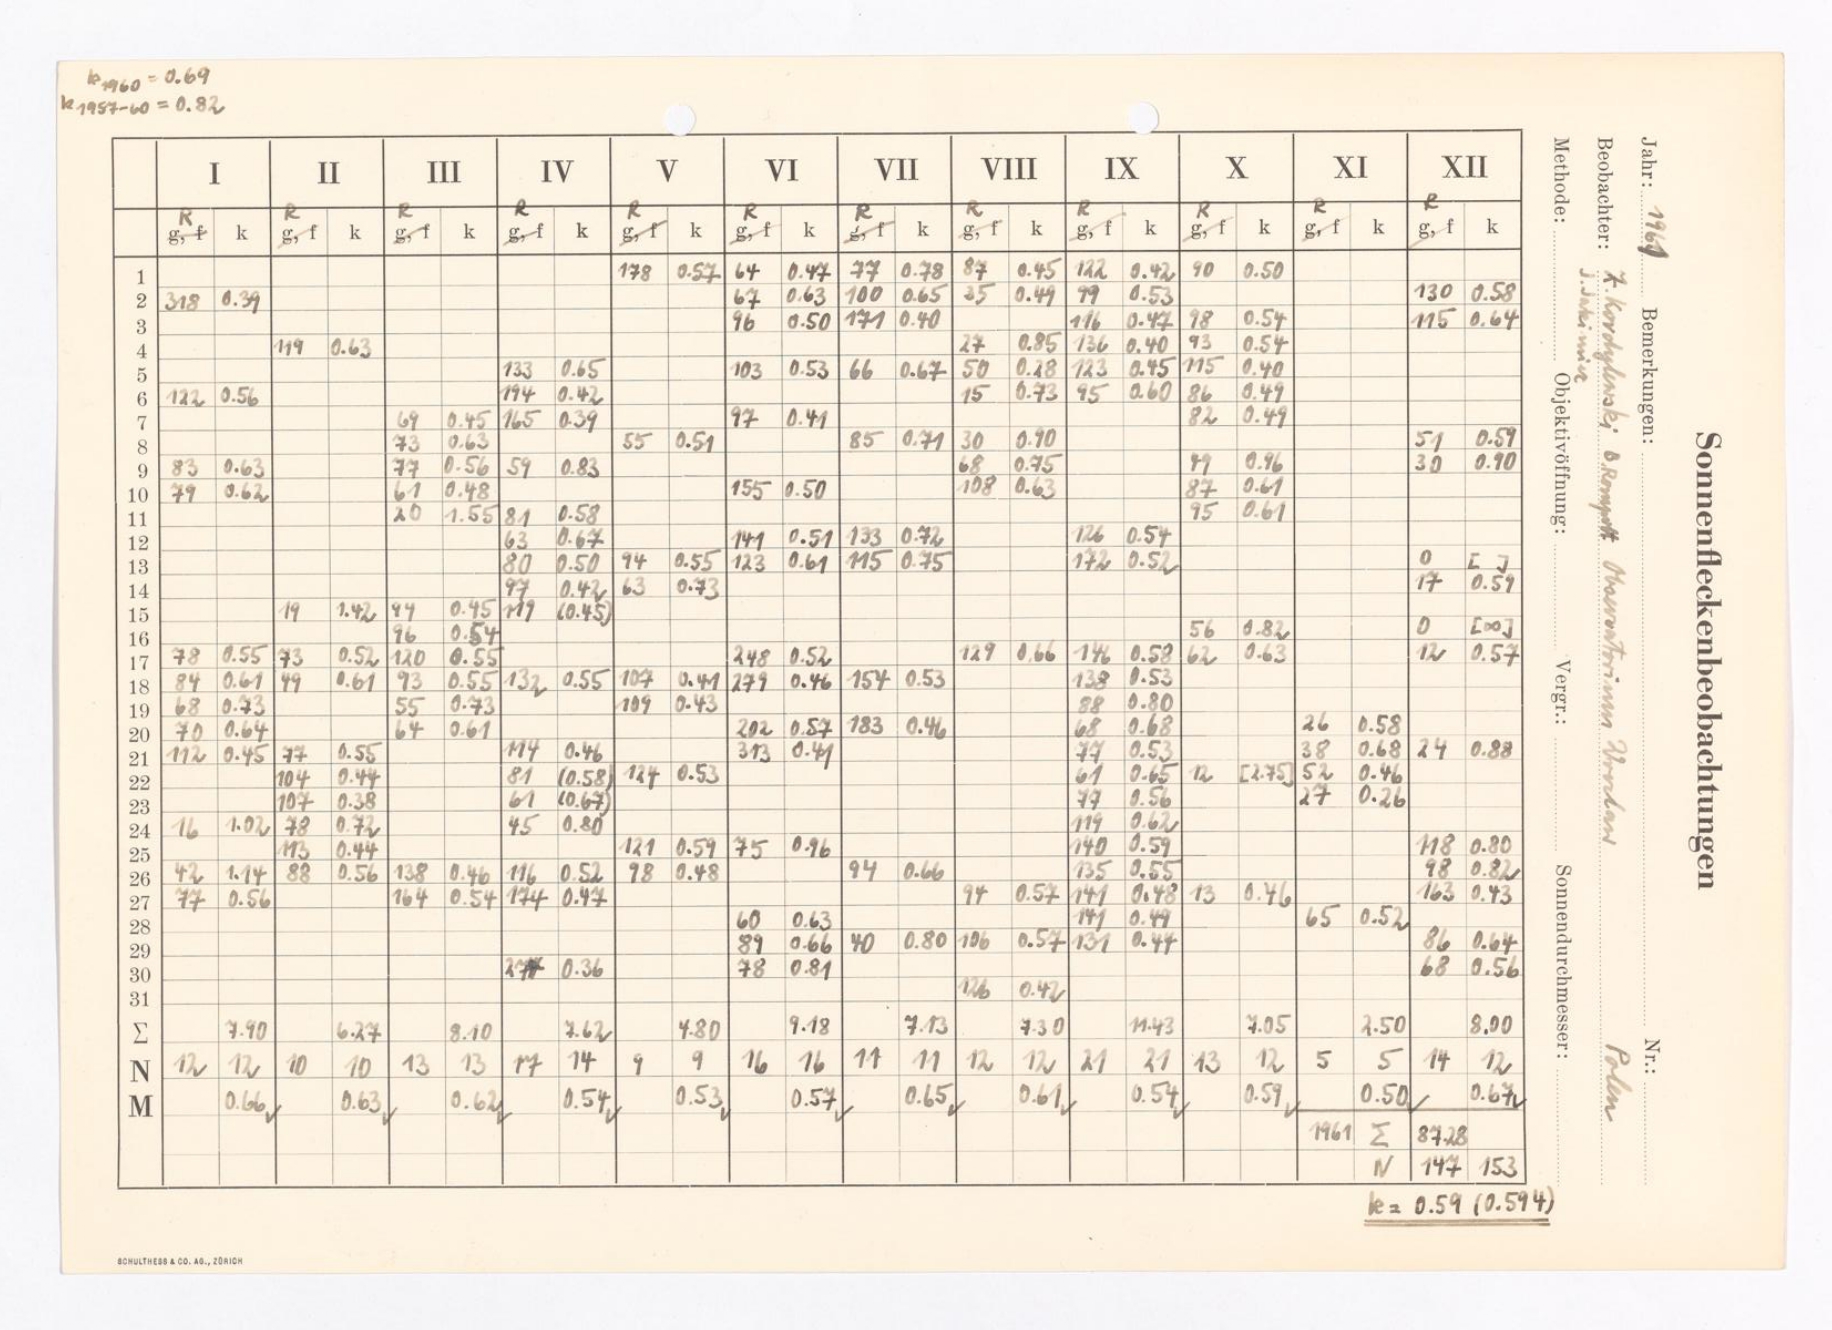 k1960 = 0.69
k1957-60 = 0.82
Sonnenfleckenbeobachtungen
Jahr: 1961 Bemerkungen: Nr.:
Beobachter: Polen
Methode: Objektivöffnung: Vergr.: Sonnendurchmesser:
I II III IV V VI VII VIII IX X XI XII
R R R R R R R R R R R R
g, f k g, f k g, f k g, f k g, f k g, f k g, f k g, f k g, f k g, f k g, f k g, f k
1 178 0.57 64 0.47 77 0.78 87 0.45 122 0.42 90 0.50
2 318 0.39 67 0.63 100 0.65 35 0.49 99 0.53 130 0.58
3 96 0.50 171 0.40 116 0.47 98 0.54 115 0.64
4 119 0.63 27 0.85 136 0.40 93 0.54
5 133 0.65 103 0.53 66 0.67 50 0.28 123 0.45 115 0.40
6 122 0.56 194 0.42 15 0.73 95 0.60 86 0.49
7 69 0.45 165 0.39 97 0.41 82 0.49
8 73 0.63 55 0.51 85 0.71 30 0.90 51 0.59
9 83 0.63 77 0.56 59 0.83 68 0.75 49 0.96 30 0.90
10 79 0.62 61 0.48 155 0.50 108 0.63 87 0.61
11 20 1.55 81 0.58 95 0.61
12 63 0.67 141 0.51 133 0.72 126 0.54
13 80 0.50 94 0.55 123 0.61 115 0.75 172 0.52 0 [ ]
14 97 0.42 63 0.73 17 0.59
15 19 1.42 94 0.45 119 (0.45)
16 96 0.54 56 0.82 0 [∞]
17 78 0.55 73 0.52 120 0.55 248 0.52 129 0.66 146 0.58 62 0.63 12 0.57
18 84 0.61 49 0.61 93 0.55 132 0.55 107 0.41 279 0.46 154 0.53 138 0.53
19 68 0.73 55 0.73 109 0.43 88 0.80
20 70 0.64 64 0.61 202 0.57 183 0.46 68 0.68 26 0.58
21 112 0.45 77 0.55 114 0.46 313 0.41 77 0.53 38 0.68 24 0.88
22 104 0.44 81 (0.58) 124 0.53 61 0.65 12 [2.75] 52 0.46
23 107 0.38 61 (0.67) 79 0.56 27 0.26
24 16 1.02 78 0.72 45 0.80 119 0.62
25 113 0.44 121 0.59 75 0.96 140 0.59 118 0.80
26 42 1.14 88 0.56 138 0.46 116 0.52 98 0.48 94 0.66 135 0.55 98 0.82
27 77 0.56 164 0.54 174 0.47 94 0.57 141 0.48 13 0.46 163 0.43
28 60 0.63 141 0.49 65 0.52
29 89 0.66 40 0.80 106 0.57 131 0.44 86 0.64
30 0.36 78 0.81 68 0.56
31 126 0.42
Σ 7.90 6.27 8.10 7.62 4.80 9.18 7.13 7.30 11.43 7.05 2.50 8.00
N 12 12 10 10 13 13 17 14 9 9 16 16 11 11 12 12 21 21 13 12 5 5 14 12
M 0.66 0.63 0.62 0.54 0.53 0.57 0.65 0.61 0.54 0.59 0.50 0.67
1961 Σ 87.28
N 147 153
k = 0.59 (0.594)
SCHULTHESS & CO. AG., ZÜRICH